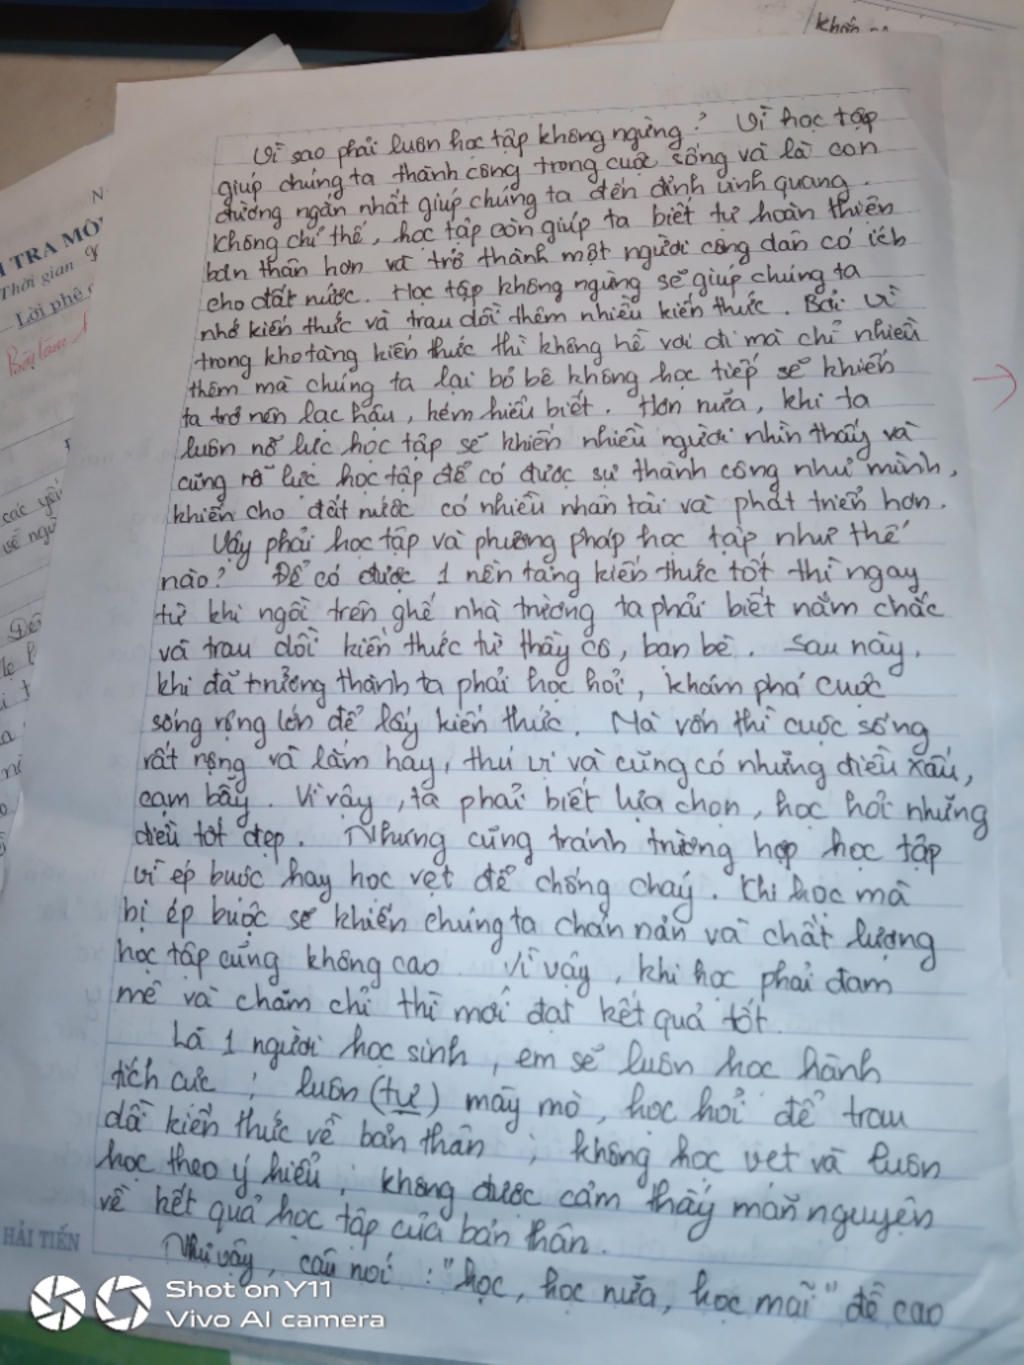 khôn
N
TRA MÔ
Thời gian
Lời phê
các yế
về ngu
Vì sao phải luôn học tập không ngừng? Vì học tập
giúp chúng ta thành công trong cuộc sống và là con
đường ngắn nhất giúp chúng ta đến đỉnh vinh quang.
Không chỉ thế, học tập còn giúp ta biết tự hoàn thiện
bản thân hơn và trở thành một người công dân có ích
cho đất nước. Học tập không ngừng sẽ giúp chúng ta
nhớ kiến thức và trau dồi thêm nhiều kiến thức. Bởi vì
trong kho tàng kiến thức thì không hề vơi đi mà chỉ nhiều
thêm mà chúng ta lại bỏ bê không học tiếp sẽ khiến
ta trở nên lạc hậu, kém hiểu biết. Hơn nữa, khi ta
luôn nỗ lực học tập sẽ khiến nhiều người nhìn thấy và
cũng nỗ lực học tập để có được sự thành công như mình,
khiến cho đất nước có nhiều nhân tài và phát triển hơn.
Vậy phải học tập và phương pháp học tập như thế
nào? Để có được 1 nền tảng kiến thức tốt thì ngay
từ khi ngồi trên ghế nhà trường ta phải biết nắm chắc
và trau dồi kiến thức từ thầy cô, bạn bè. Sau này,
khi đã trưởng thành ta phải học hỏi, khám phá cuộc
sống rộng lớn để lấy kiến thức. Mà vốn thì cuộc sống
rất rộng và lắm hay, thú vị và cũng có những điều xấu,
cạm bẫy. Vì vậy, ta phải biết lựa chọn, học hỏi những
điều tốt đẹp. Nhưng cũng tránh trường hợp học tập
vì ép buộc hay học vẹt để chống chạy. Khi học mà
bị ép buộc sẽ khiến chúng ta chán nản và chất lượng
học tập cũng không cao. Vì vậy, khi học phải đam
mê và chăm chỉ thì mới đạt kết quả tốt.
Là 1 người học sinh, em sẽ luôn học hành
tích cực; luôn (tự) mày mò, học hỏi để trau
dồi kiến thức về bản thân; không học vẹt và luôn
học theo ý hiểu; không được cảm thấy mãn nguyện
về kết quả học tập của bản thân.
Như vậy, câu nói: "học, học nữa, học mãi" đề cao
HẢI TIẾN
Shot on Y11
Vivo AI camera